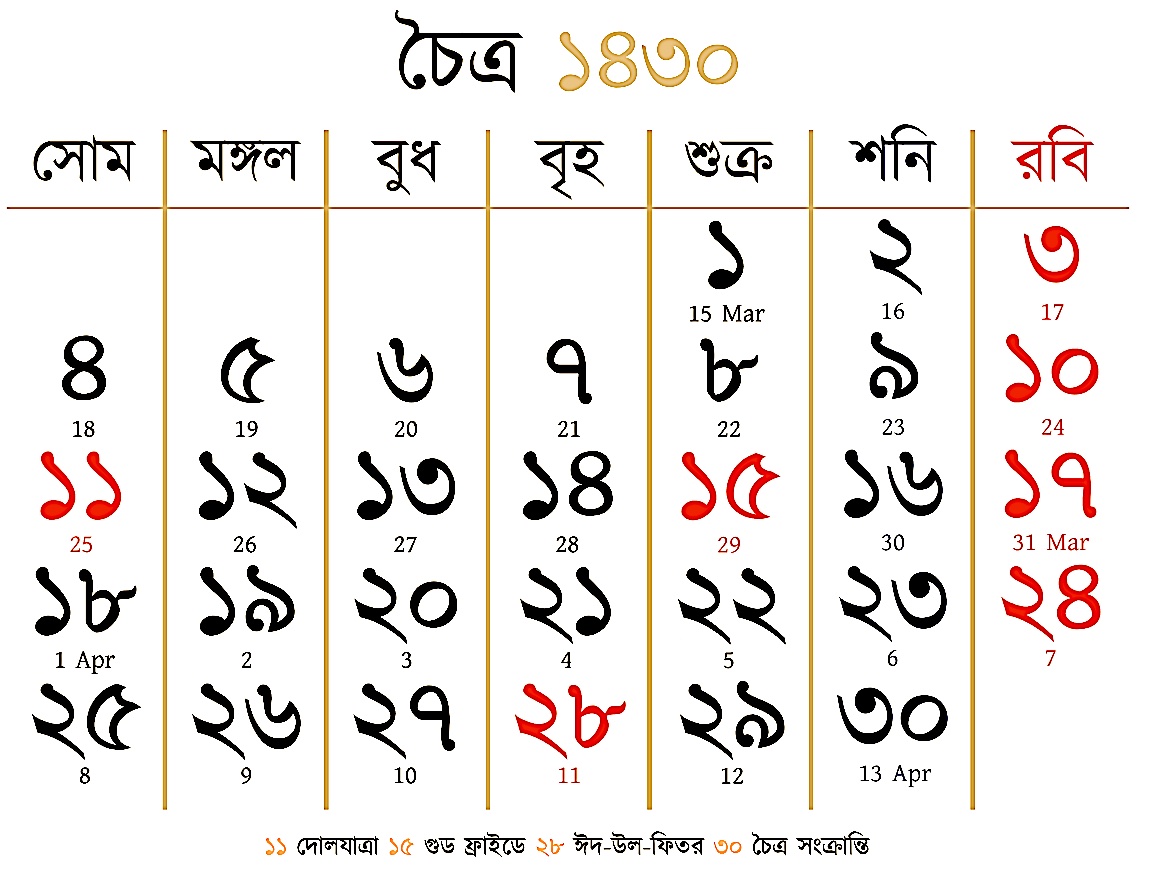 চৈত্র ১৪৩০
সোম মঙ্গল বুধ বৃহ শুক্র শনি রবি
১ ২ ৩
15 Mar 16 17
৪ ৫ ৬ ৭ ৮ ৯ ১০
18 19 20 21 22 23 24
১১ ১২ ১৩ ১৪ ১৫ ১৬ ১৭
25 26 27 28 29 30 31 Mar
১৮ ১৯ ২০ ২১ ২২ ২৩ ২৪
1 Apr 2 3 4 5 6 7
২৫ ২৬ ২৭ ২৮ ২৯ ৩০
8 9 10 11 12 13 Apr
১১ দোলযাত্রা ১৫ গুড ফ্রাইডে ২৮ ঈদ-উল-ফিতর ৩০ চৈত্র সংক্রান্তি